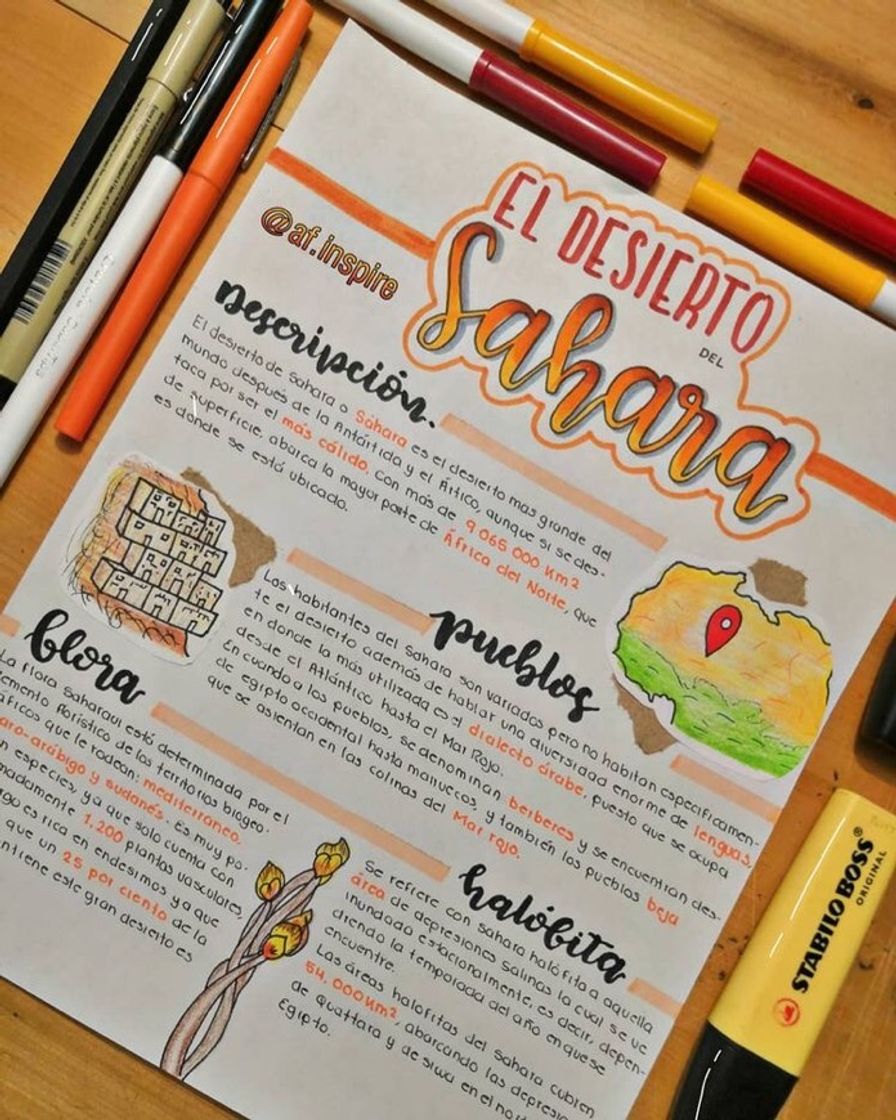 EL DESIERTO
DEL
Sahara
@af.inspire
Descripción.
El desierto de Sahara o Sáhara es el desierto mas grande del
mundo después de la Antártida y el Ártico, aunque si se des-
taca por ser el más cálido, con más de 9 065 000 Km2
de superficie, abarca la mayor parte de África del Norte, que
es donde se está ubicado.
pueblos
Los habitantes del Sahara son variados pero no habitan especificamen-
te el desierto además de hablar una diversidad enorme de lenguas,
en donde la más utilizada es el dialecto árabe, puesto que se ocupa
desde el Atlántico hasta el Mar Rojo.
En cuando a los pueblos, se denominan berberes y se encuentran des-
de egipto occidental hasta marruecos, y también los pueblos beja
que se asientan en las colinas del Mar rojo.
flora
La flora Saharaui está determinada por el
elemento florístico de los territorios biogeo-
áficos que le rodean: mediterraneo,
aro-arábigo y sudanés. Es muy po-
n especies, ya que solo cuenta con
madamente 1.200 plantas vasculares,
go es rica en endesimos ya que
que un 25 por ciento de la
ntiene este gran desierto es
halófita
Se refiere con Sahara halófita a aquella
área de depresiones Salinas la cual se ve
inundada estacionalmente, es decir, depen-
diendo la temporada del año en que se
encuentre.
Las áreas halofitas del Sahara cubren
54,000 km2, abarcando las depresio
de Quattara y de siwa en el nort
Egipto.
STABILO BOSS®
ORIGINAL